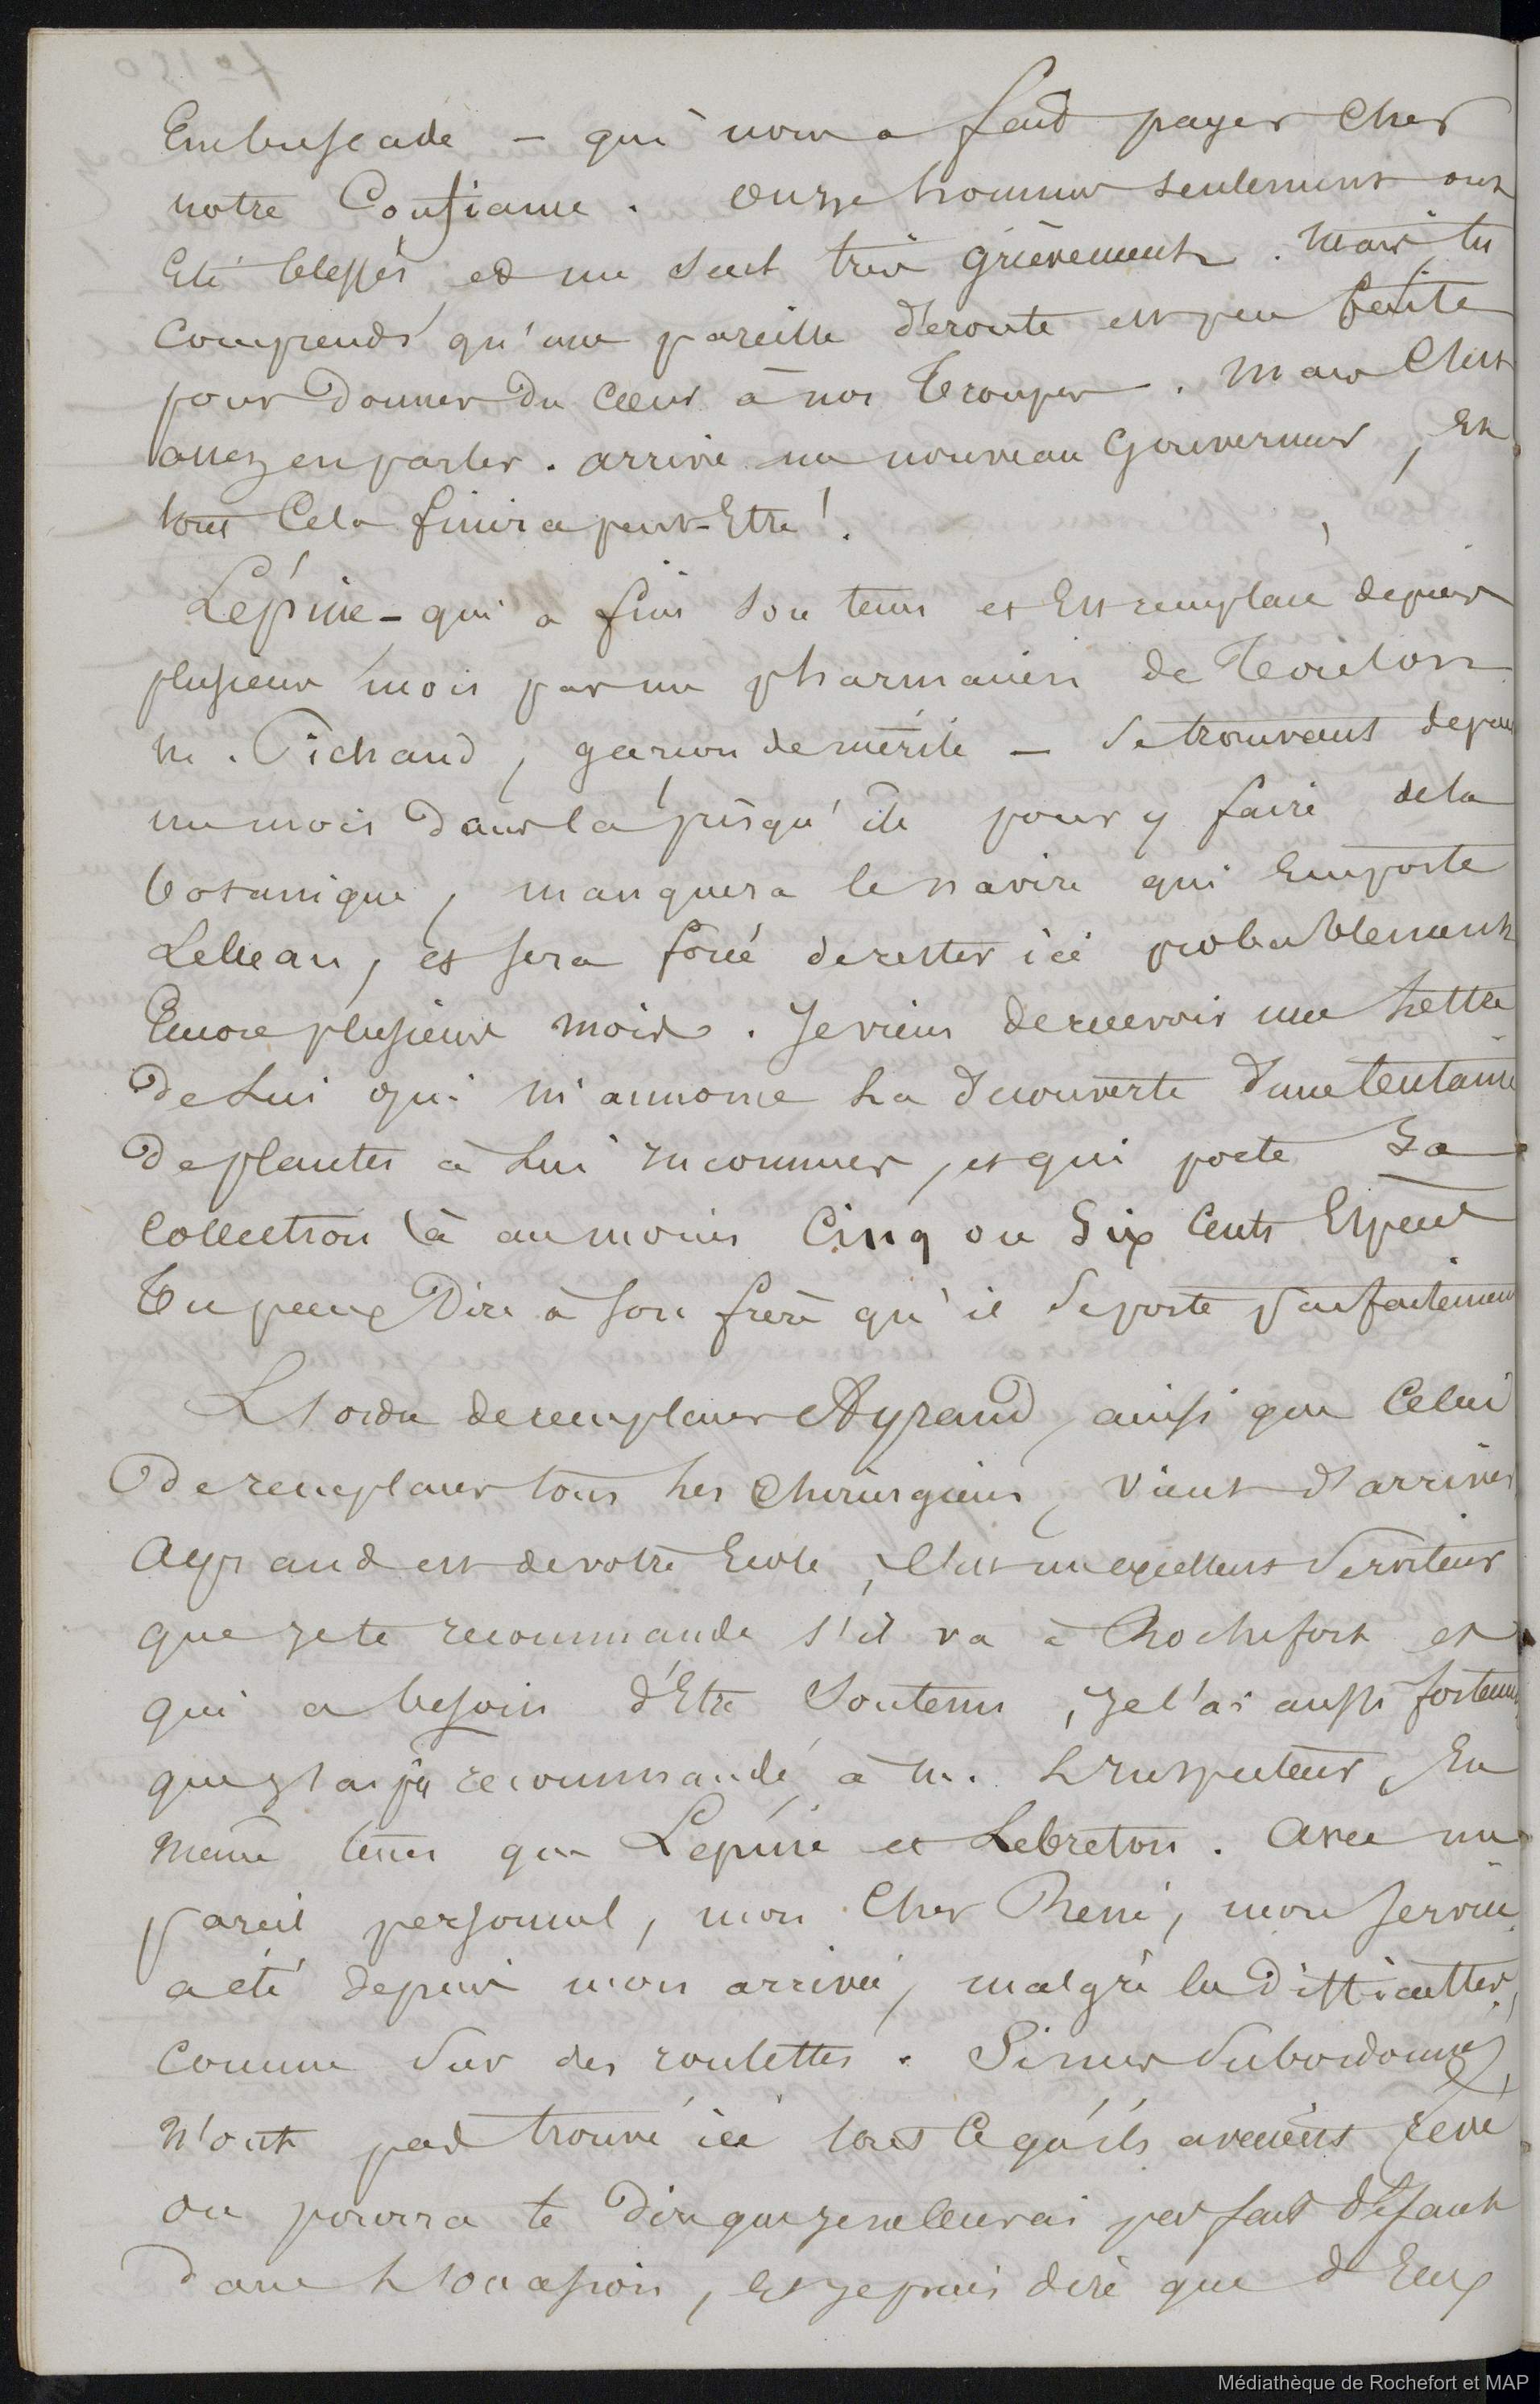 Embuscade — qui nous a fait payer Cher
notre Confiance. Onze hommes seulement ont
Eté blessés, et un seul très grièvement. Mais, tu
Comprends qu'une pareille déroute est peu faite
pour Donner Du Cœur à nos Troupes. Mais C'est
assez en parler. arrive un nouveau Gouverneur, Et
tout Cela finira peut-Etre!.
Lépine — qui a fini son tems et Est remplacé depuis
plusieurs mois par un pharmacien de Toulon
M. Pichaud, garçon de mérite — se trouvant depuis
un mois Dans la presqu'ile pour y faire de la
botanique, manquera le navire qui Emporte
Lebeau, et sera forcé de rester ici probablement
Encore plusieurs mois. Je viens de recevoir une Lettre
De Lui qui m'annonce La Decouverte d'une centaine
De plantes à Lui inconnues, et qui porte Sa
Collection à au moins Cinq ou Six Cents Espèces
Tu peux Dire à son frère qu'il se porte parfaitement
L'ordre de remplacer Ayraud, ainsi que Celui
De remplacer tous Les Chirurgiens, Vient d'arriver
Ayraud est de votre Ecole, C'est un excellent Serviteur
que je te recommande s'il va à Rochefort et
qui a besoin d'Etre Soutenu, je l'ai aussi fortement
que j'ai pu recommandé à M. L'inspecteur, En
même tems que Lépine et Lebreton. Avec un
pareil personnel, mon Cher René, mon service
a été depuis mon arrivée, malgré les Difficultés,
Comme Sur des roulettes. Si mes Subordonnés
N'ont pas trouvé ici tout Ce qu'ils avaient rêvé
On pourra te Dire que je ne leur ai pas fait Défaut
Dans L'occasion, Et je puis dire que d'Eux
Médiathèque de Rochefort et MAP